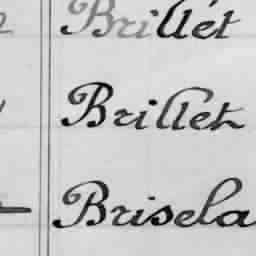 Brillét
Brillet
Brisela